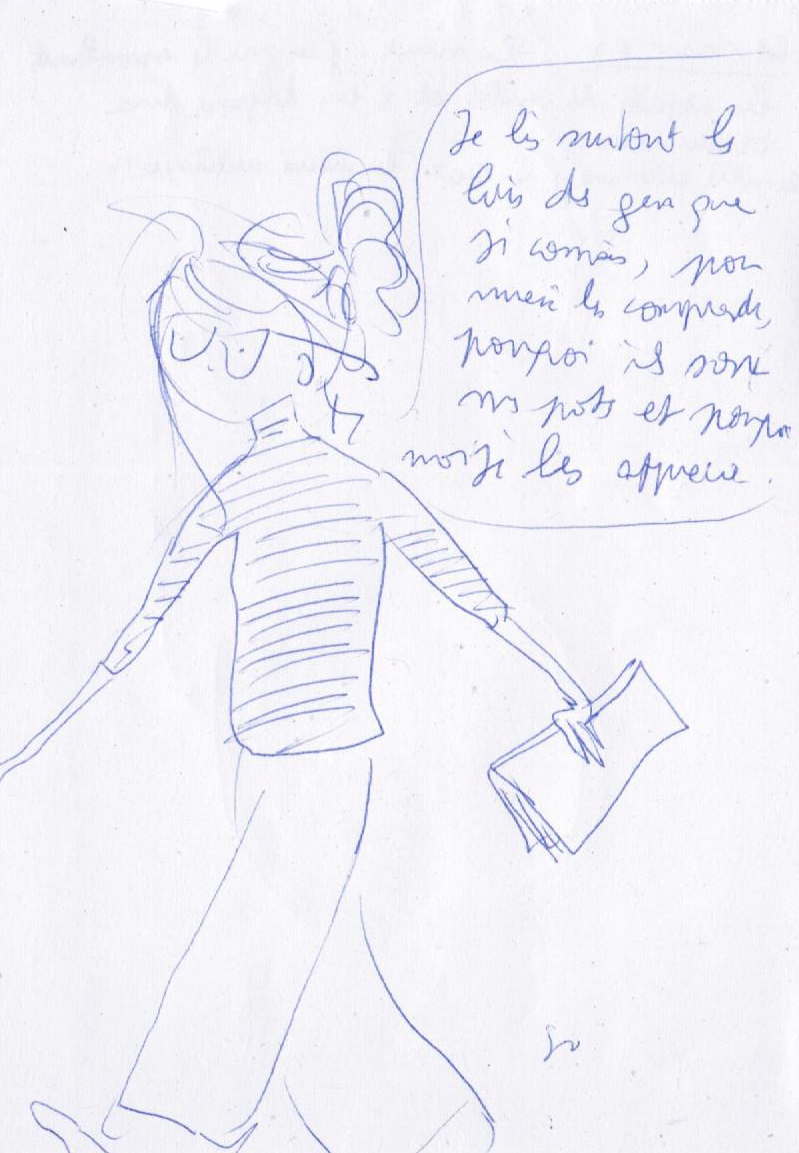 Je lis surtout les
livres des gens que
je connais, pour
mieux les comprendre,
pourquoi ils sont
mes potes et pourquoi
moi je les apprécie.